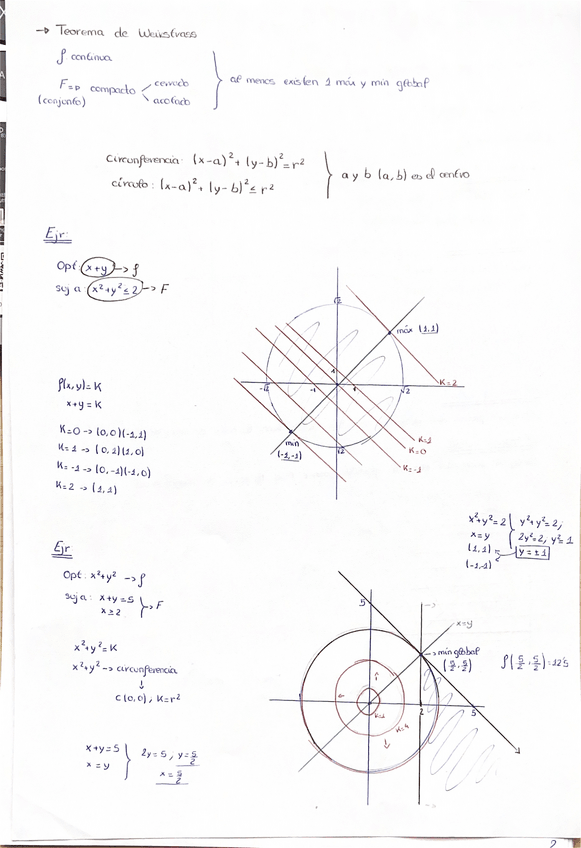 → Teorema de Weiestrass
f continua
F => compacto < cerrado
acotado
(conjunto)
al menos existen 1 máx y mín global
Circunferencia: (x-a)²+(y-b)²=r²
círculo: (x-a)²+(y-b)²≤r²
a y b (a,b) es el centro
Ejr:
Opt: x+y → f
suj a: x²+y²≤2 → F
f(x,y)=K
x+y=K
K=0 → (0,0)(-1,1)
K=1 → (0,1)(1,0)
K=-1 → (0,-1)(-1,0)
K=2 → (1,1)
√2
máx (1,1)
K=2
-√2
-1
1
1
√2
K=1
K=0
K=-1
mín
(-1,-1)
√2
x²+y²=2
x=y
(1,1)
(-1,-1)
y²+y²=2;
2y²=2, y²=1
y=±1
Ejr
Opt: x²+y² → f
suj a: x+y=5
x≥2
→ F
x²+y²=K
x²+y² → circunferencia
↓
C(0,0), K=r²
x+y=5
x=y
2y=5, y=5/2
x=5/2
5
x=y
→ mín global
(5/2, 5/2)
f(5/2, 5/2)=12'5
K=1
K=4
2
5
2